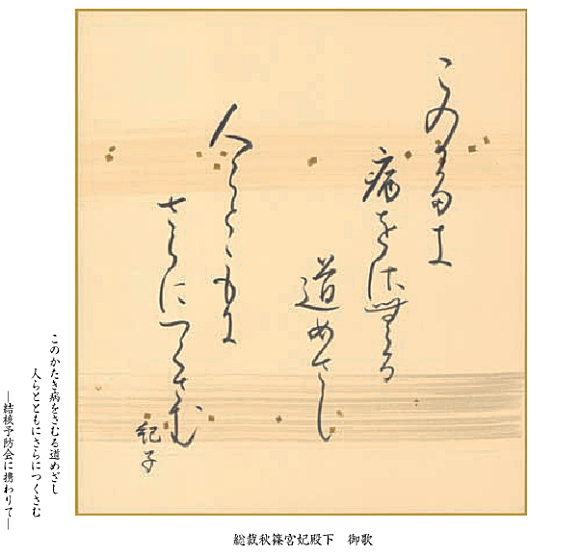 このかたき
病をさむる
道めさし
人らとゝもに
さらにつくさむ
紀子
このかたき病をさむる道めざし
人らとともにさらにつくさむ
―結核予防会に携わりて―
総裁秋篠宮妃殿下　御歌